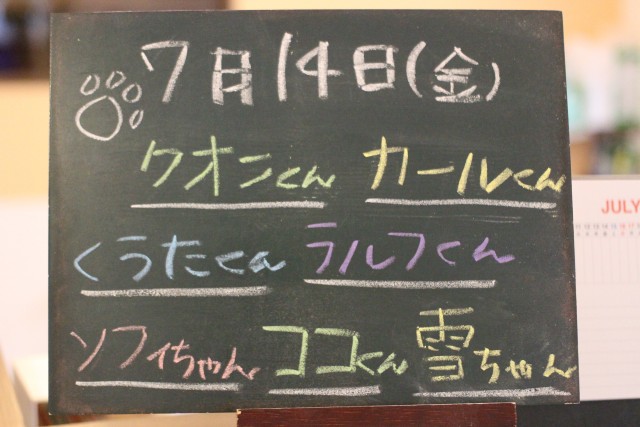 7月14日(金)
クオンくん カールくん
くうたくん ラルフくん
ソフィちゃん ココくん 雪ちゃん
JULY